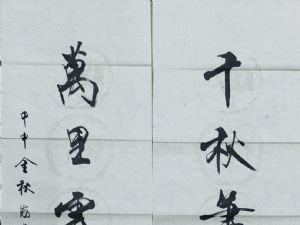 千秋筆
萬里雲
甲申金秋